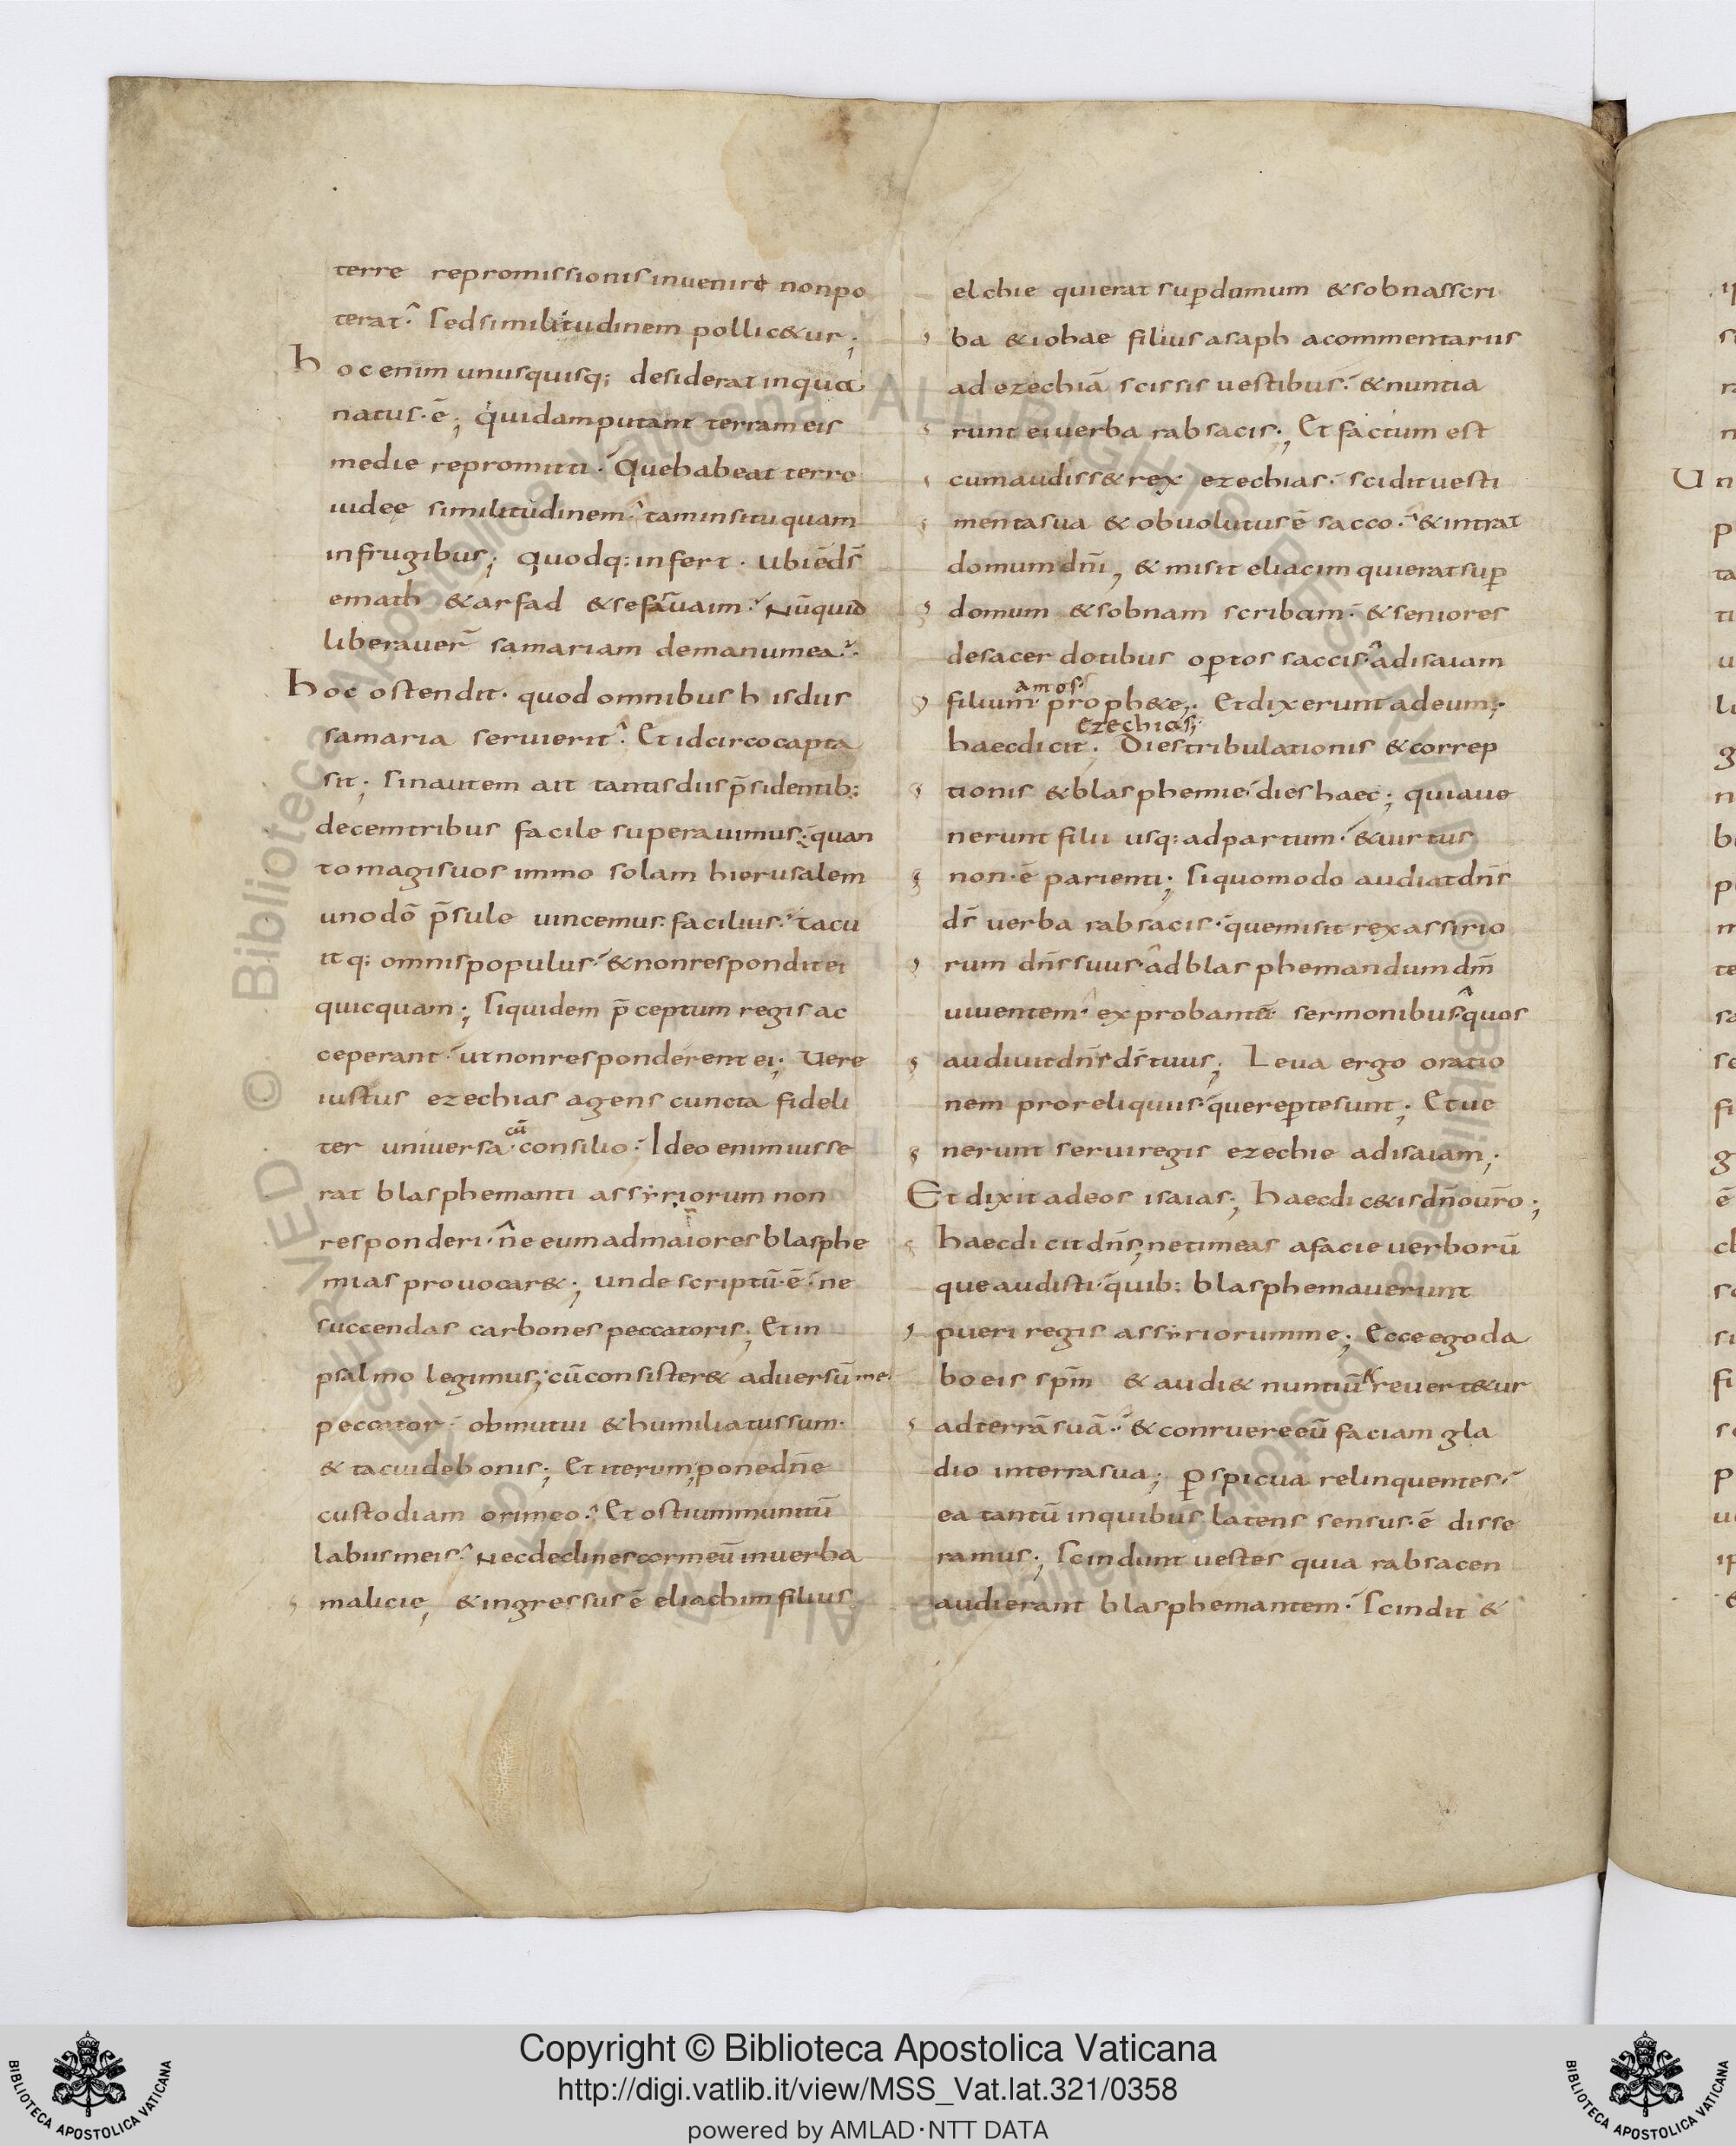 terre repromissionis invenire non po
terat. sed similitudinem pollic&ur;
hoc enim unusquisq; desiderat in qua
natus. ē; quidam putant terram eis
medie repromitti. Que habeat terre
iudeę similitudinem. tam in situ quam
in frugibus; quodq: infert. ubi ē ds̄
emath & arfad & sefarvaim. Nūquid
liberaver̄ samariam de manu mea.
hoc ostendit. quod omnibus his diis
samaria servierit. Et idcirco capta
sit; sin autem ait tantis diis p̄sidentib:
decem tribus facile superavimus. quan
to magis vos immo solam hierusalem
uno dō p̄sule vincemus. facilius. tacu
itq: omnis populus. & non respondit ei
quicquam; siquidem p̄ceptum regis ac
ceperant. ut non responderent ei; vere
iustus ezechias agens cuncta fideli
ter universa. cū consilio. Ideo enim iusse
rat blasphemanti assyriorum non
responderi. ne eum ad maiores blasphe
mias provocar&; unde scriptū. ē. ne
succendas carbones peccatoris; Et in
psalmo legimus; cū consister& adversū me
peccator. obmutui & humiliatus sum.
& tacui de bonis; Et iterum; pone dn̄e
custodiam ori meo. Et ostium munitū
labiis meis. Nec declines cor meū in verba
malicie, & ingressus ē eliachim filius
elchie qui erat sup domum & sobnas scri
ba & iohae filius asaph a commentariis
ad ezechiā scissis vestibus. & nuntia
runt ei verba rabsacis; Et factum est
cum audiss& rex ezechias. scidit vesti
menta sua & obvolutus ē sacco. & intrat
domum dn̄i, & misit eliacim qui erat sup
domum & sobnam scribam. & seniores
de sacerdotibus optos saccis ad isaiam
filium amos proph&e. Et dixerunt ad eum;
haec dicit ezechias; Dies tribulationis & correp
tionis & blasphemie. dies haec; quia ve
nerunt filii usq: ad partum. & virtus
non. ē parienti; si quomodo audiat dn̄s
ds̄ verba rabsacis. quem misit rex assirio
rum dn̄s suus ad blasphemandum dm̄
viventem. exprobantē sermonibus quos
audivit dn̄s ds̄ tuus; Leva ergo oratio
nem pro reliquiis que repte sunt; Et ve
nerunt servi regis ezechie ad isaiam;
Et dixit ad eos isaias; haec dic&is dn̄o vr̄o;
haec dicit dn̄s; ne timeas a facie verborū
que audisti. quib: blasphemaverunt
pueri regis assyriorum me; Ecce ego da
bo eis spm̄ & audi& nuntiū & revert&ur
ad terrā suā. & conruere eū faciam gla
dio in terra sua; pspicua relinquentes.
ea tantū in quibus latens sensus. ē disse
ramus; scindunt vestes quia rabsacen
audierant blasphemantem. scindit &
Copyright © Biblioteca Apostolica Vaticana
http://digi.vatlib.it/view/MSS_Vat.lat.321/0358
powered by AMLAD·NTT DATA
BIBLIOTECA APOSTOLICA VATICANA
BIBLIOTECA APOSTOLICA VATICANA